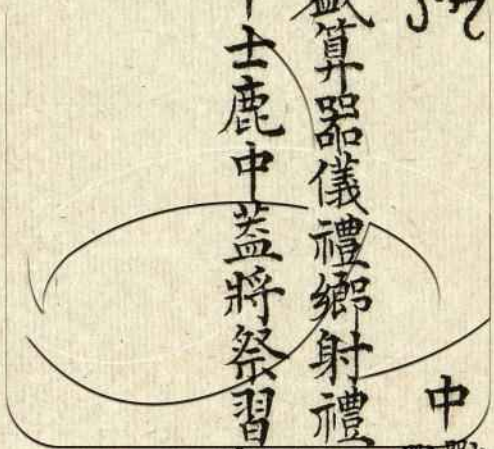 中
盛算器儀禮鄉射禮
士鹿中蓋將祭習